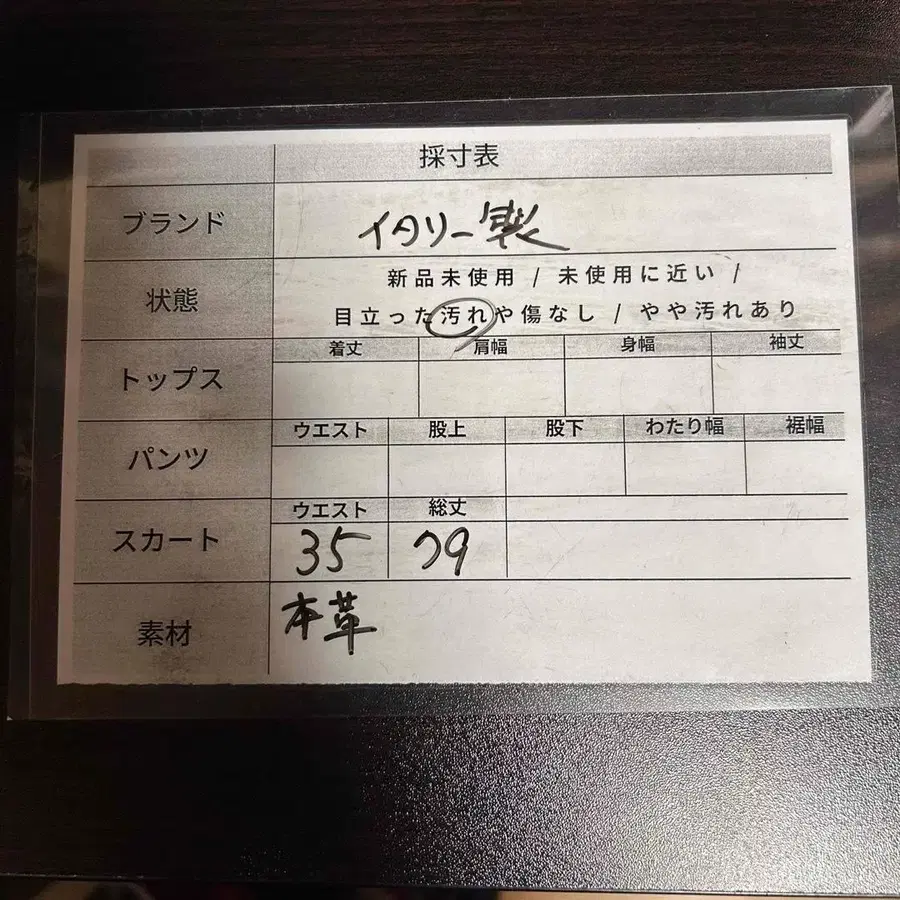 採寸表
ブランド イタリー製
状態 新品未使用 / 未使用に近い /
目立った汚れや傷なし / やや汚れあり
トップス 着丈 肩幅 身幅 袖丈
パンツ ウエスト 股上 股下 わたり幅 裾幅
スカート ウエスト 総丈
35 79
素材 本革